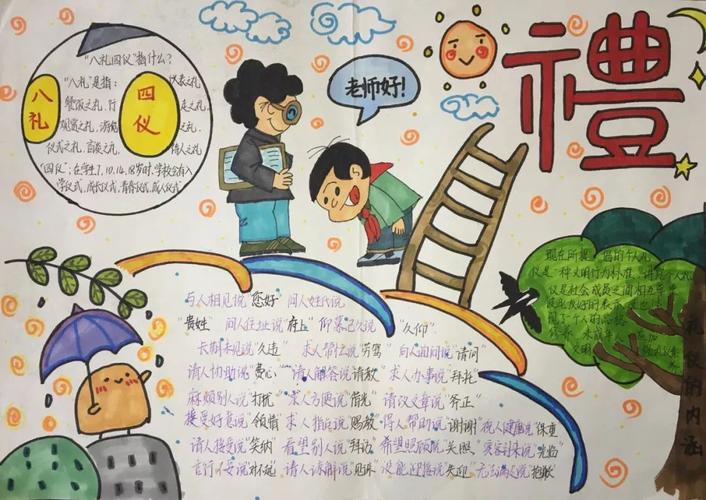 禮
"八礼四仪"指什么?
八礼
四仪
"八礼"是指: 仪表之礼
餐饮之礼,行走之礼,
观赏之礼,游览之礼,
仪式之礼,言谈之礼,待人之礼
"四仪":在学生7、10、14、18岁时,学校会有入
学仪式,成长仪式,青春仪式,成人仪式
老师好!
与人相见说"您好" 问人姓氏说
"贵姓" 问人住址说"府上" 仰慕已久说 "久仰"
长期未见说"久违" 求人帮忙说"劳驾" 向人询问说"请问"
请人协助说"费心" 请人解答说"请教" 求人办事说"拜托"
麻烦别人说"打扰" 求人方便说"借光" 请改文章说"斧正"
接受好意说"领情" 求人指点说"赐教" 得人帮助说"谢谢" 祝人健康说"保重"
请人接受说"笑纳" 看望别人说"拜访" 希望照顾说"关照" 宾客到来说"光临"
言行不妥说"对不起" 请人谅解说"见谅" 没能迎接说"失迎" 无法满足说"抱歉"
现在所提
仪是一种文明行为标准
仪是社会成员之间相互
礼仪的内涵